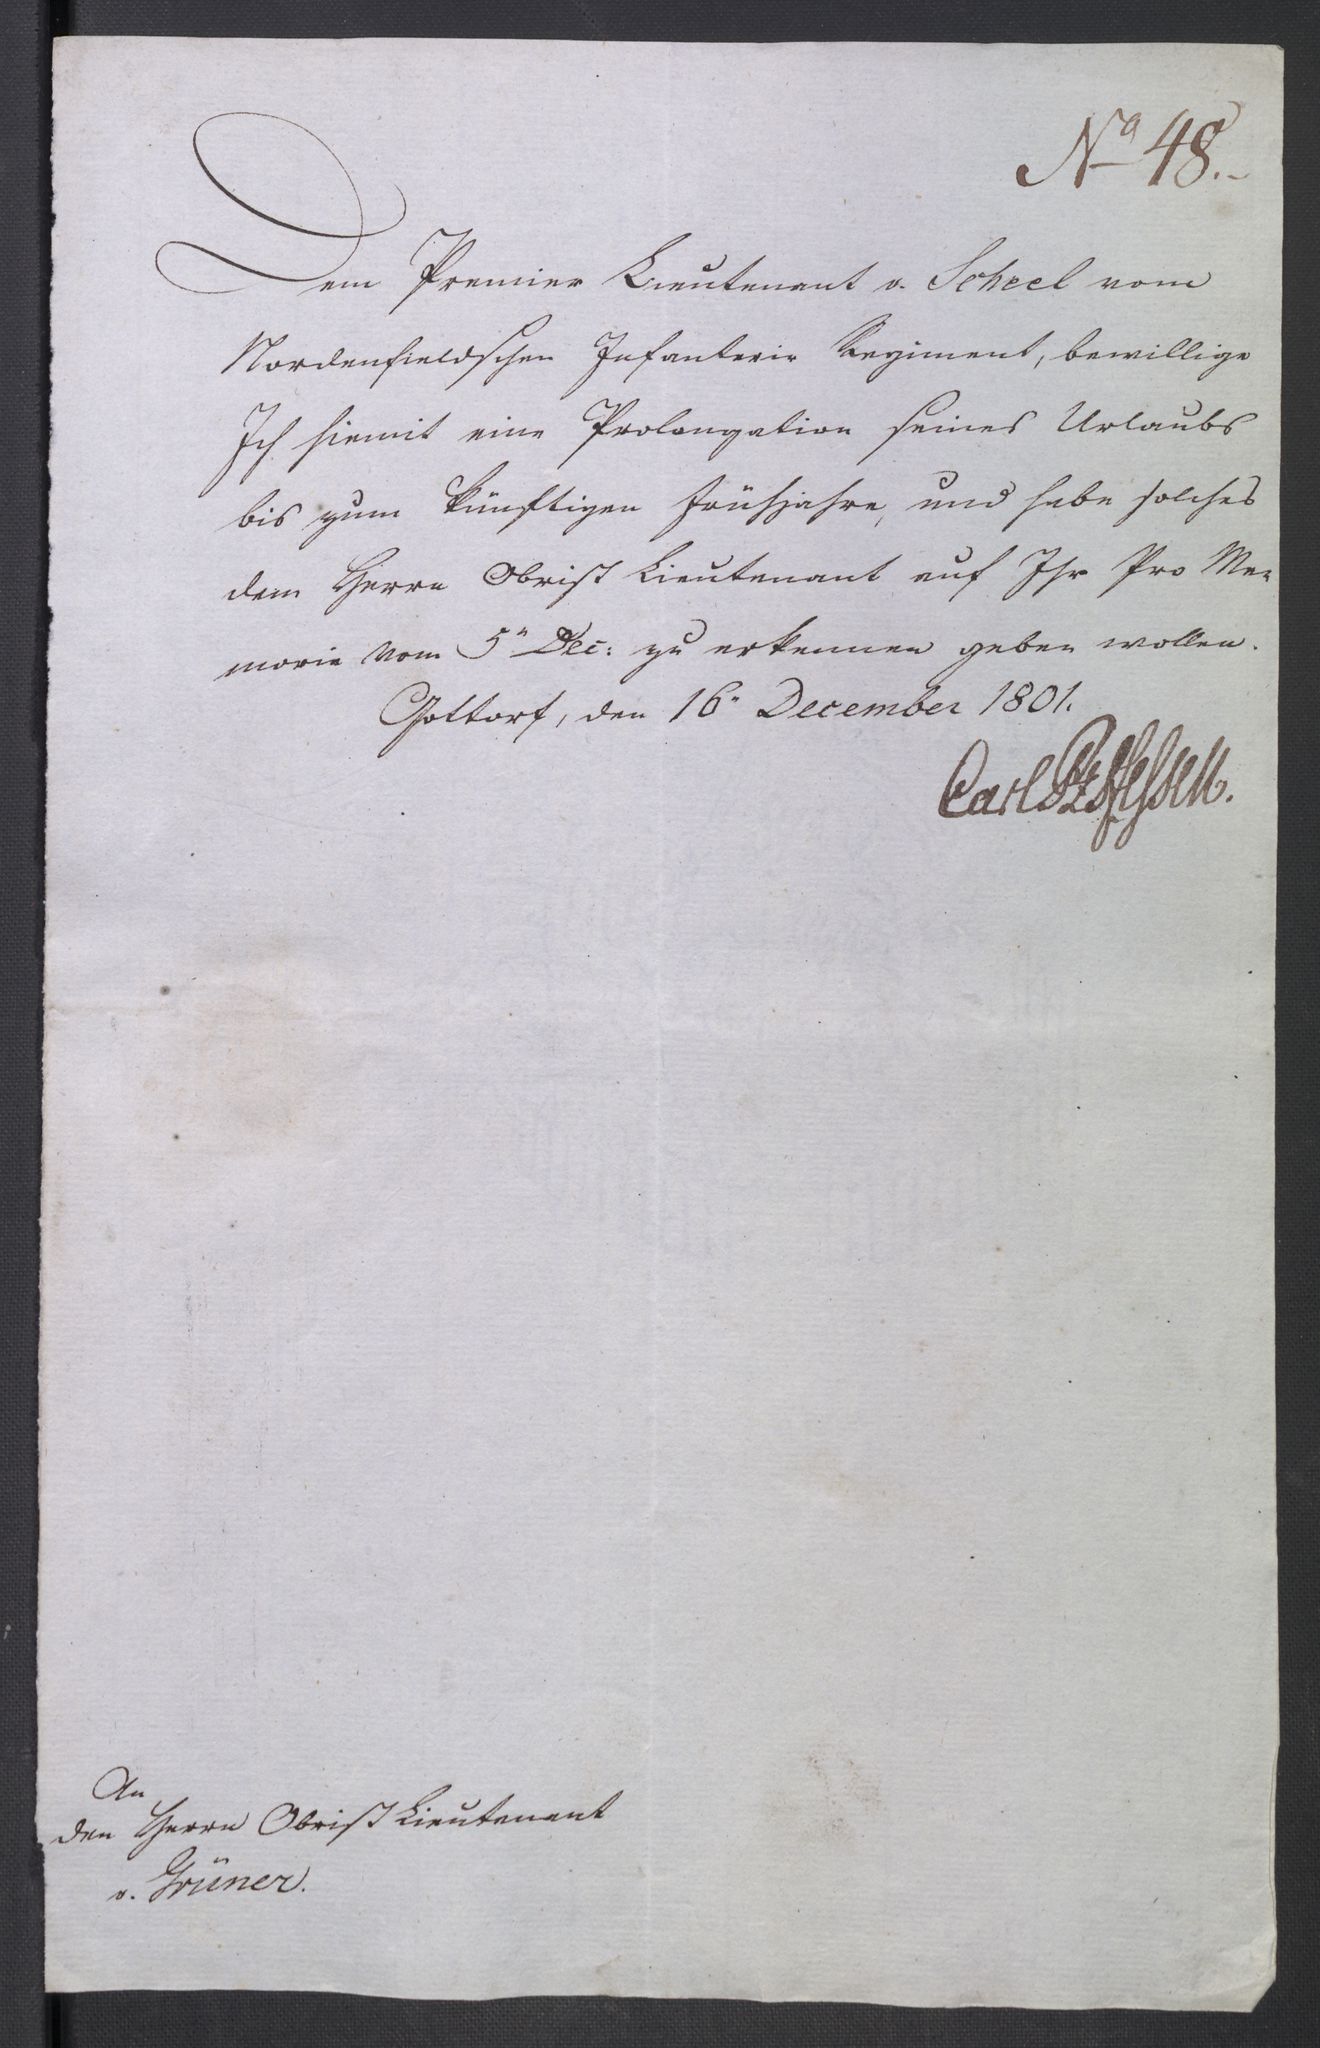 No 48.
Dem Premier Lieutenant v. Scheel vom
Nordenfieldschen Infanterie Regiment, bewillige
Ich hiemit eine Prolongation seines Urlaubs
bis zum künftigen Frühjahre, und habe solches
dem Herrn Obrist Lieutenant auf Ihr Pro Me-
morie vom 5n Dec: zu erkennen geben wollen.
Gottorf, den 16n December 1801.
Carl PzHessen.
An
den Herrn Obrist Lieutenant
v. Grüner.